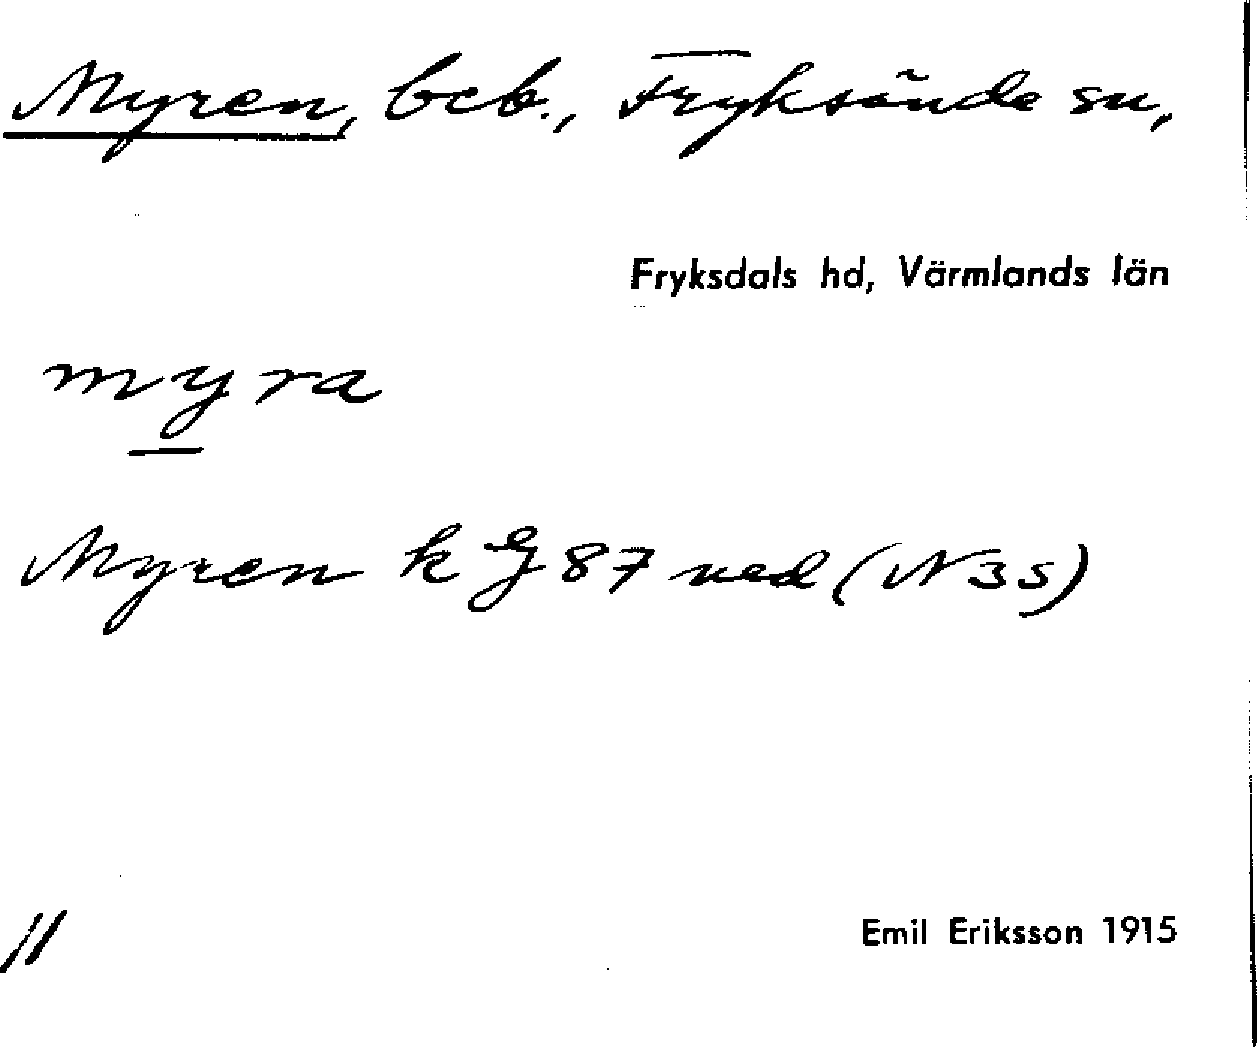 Myren, beb., Fryksände sn,
Fryksdals hd, Värmlands län
myra
Myren k G 87 ned (N 3 s)
11
Emil Eriksson 1915